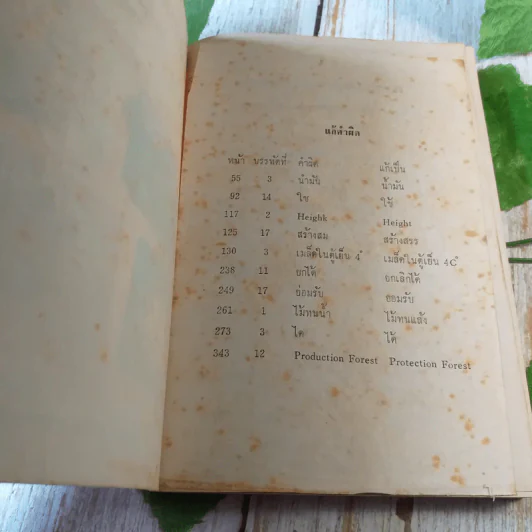 แก้คำผิด
หน้า บรรทัดที่ คำผิด แก้เป็น
55 3 นำมัน น้ำมัน
92 14 ใช ใช้
117 2 Heighk Height
125 17 สร้างสม สร้างสรร
130 3 เมล็ดในตู้เย็น 4° เมล็ดในตู้เย็น 4C°
238 11 ยกได้ ยกเลิกได้
249 17 ย่อมรับ ยอมรับ
261 1 ไม้ทนน้ำ ไม้ทนแล้ง
273 3 ได ได้
343 12 Production Forest Protection Forest